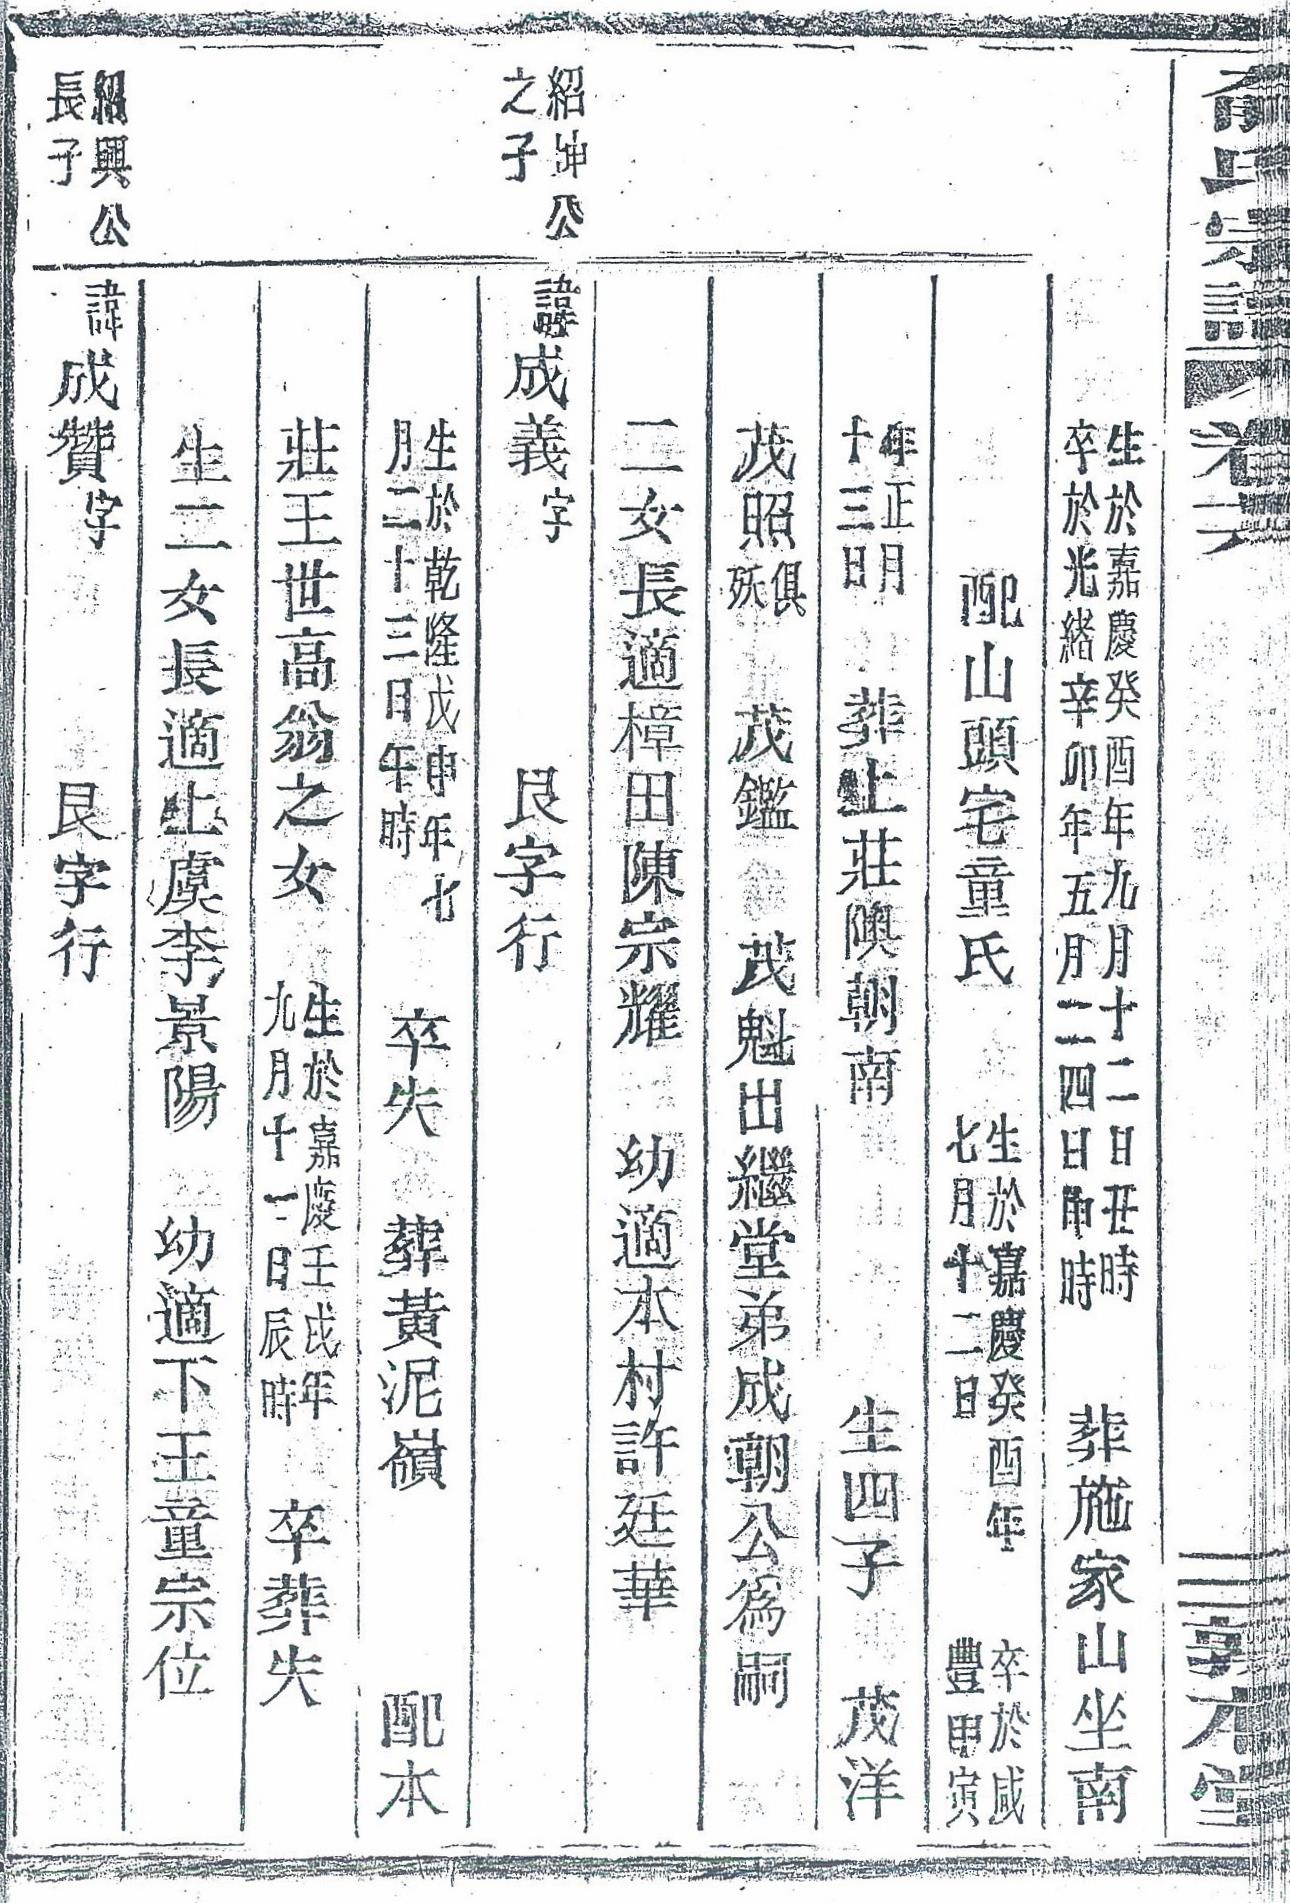 氏宗譜 卷六 敦本堂
生於嘉慶癸酉年九月十二日丑時
卒於光緒辛卯年五月二四日申時
葬施家山坐南
配山頭宅童氏
生於嘉慶癸酉年
七月十二日
卒於咸
豐甲寅
年正月
十三日
葬上莊隩朝南 生四子 茂洋
茂照 俱
殀
茂鑑 茂魁出繼堂弟成朝公為嗣
二女長適樟田陳宗耀 幼適本村許廷華
紹坤公
之子
諱成義字 艮字行
生於乾隆戊申年七
月二十三日午時
卒失 葬黃泥嶺 配本
莊王世高翁之女
生於嘉慶壬戌年
九月十一日辰時
卒葬失
生二女長適上虞李景陽 幼適下王童宗位
紹興公
長子
諱成贊字 艮字行